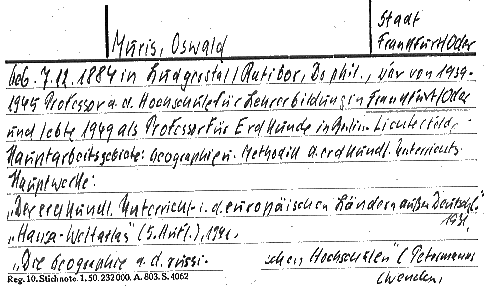 Stadt
Muris, Oswald Frankfurt/Oder
geb. 7.12.1884 in Ratibor, Dr. phil., war von 1939-
1945 Professor a. d. Hochschule für Lehrerbildung in Frankfurt/Oder
und lebte 1949 als Professor für Erdkunde in Berlin-Lichterfelde,
Hauptarbeitsgebiete: Geographie u. Methodik d. erdkundl. Unterrichts
Hauptwerke:
"Der erdkundl. Unterricht i. d. europäischen Ländern außer Deutschl."
"Hansa-Weltatlas" (5. Aufl.),
"Die Geographie a. d. russi- schen Hochschulen" (Petermanns
Reg. 10. Stichnote. 1. 50. 232000. A. 803. S. 4062